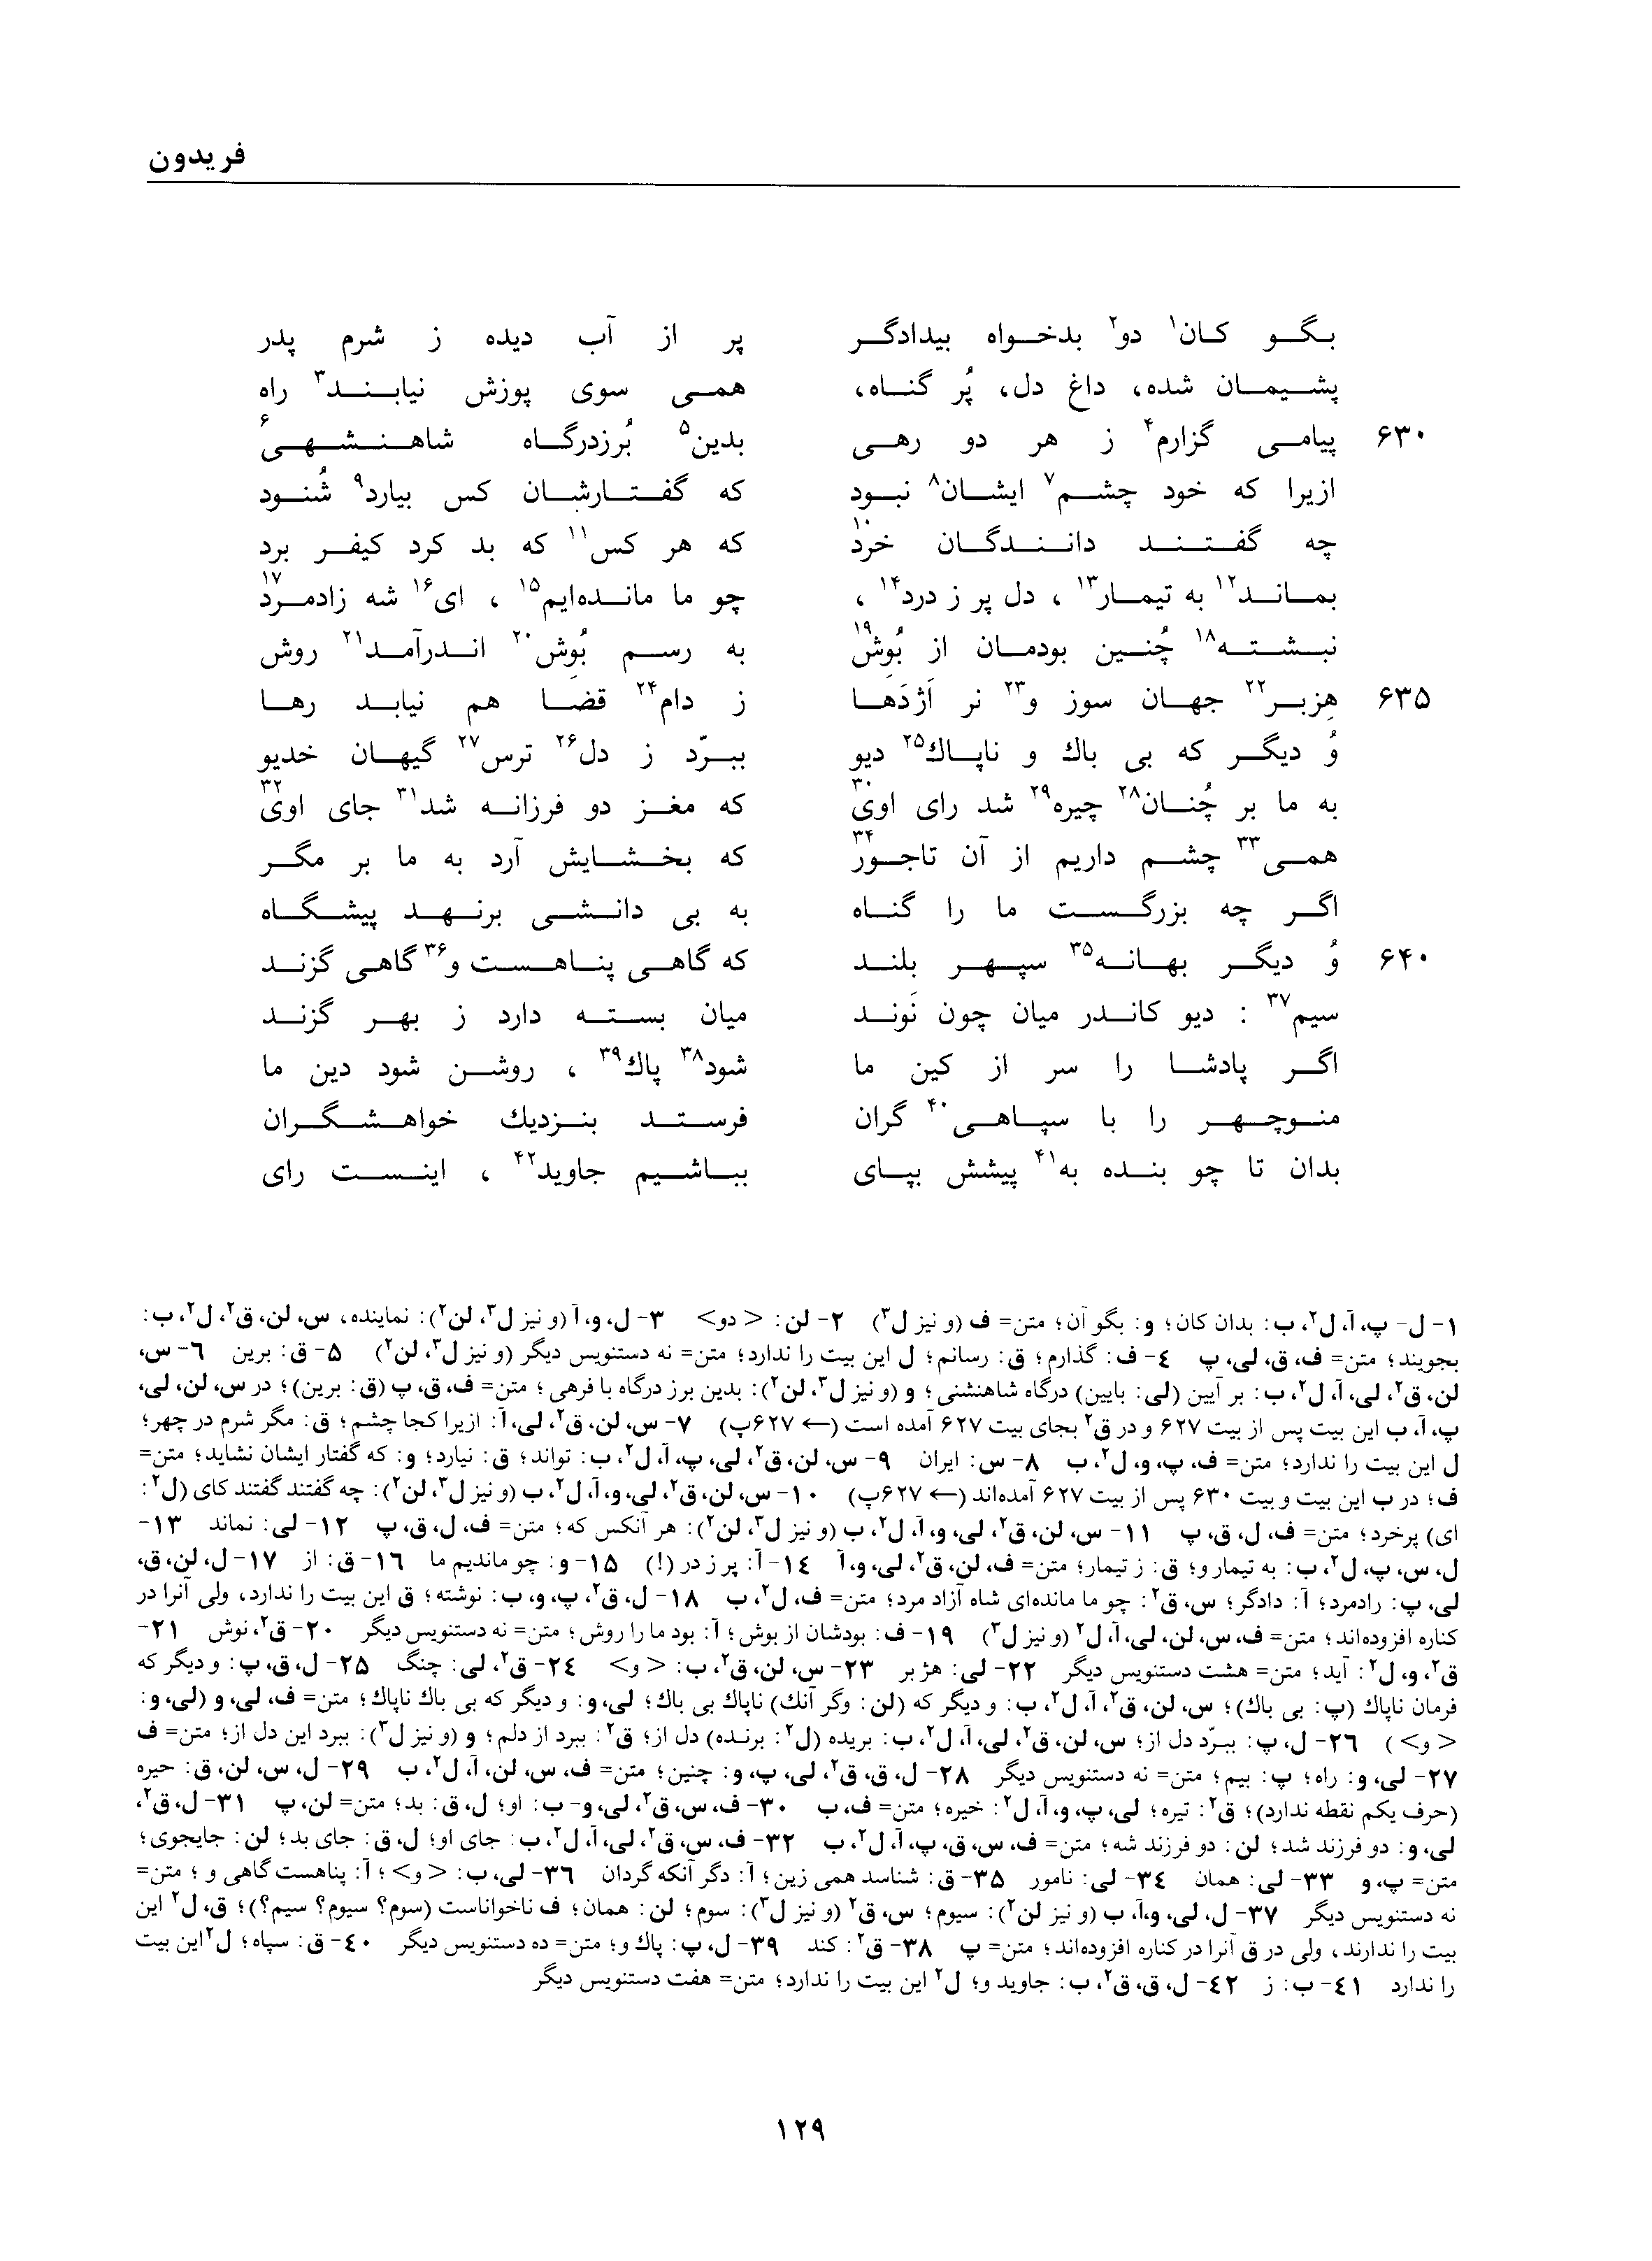 فریدون
بگو کان۱ دو۲ بدخواه بیدادگر پر از آب دیده ز شرم پدر
پشیمان شده، داغ دل، پُر گناه، همی سوی پوزش نیابند۳ راه
۶۳۰ پیامی گزارم۴ ز هر دو رهی بدین۵ بُرزدرگاه شاهنشهی۶
ازیرا که خود چشم۷ ایشان۸ نبود که گفتارشان کس بیارد۹ شُنود
چه گفتند دانندگان خرد۱۰ که هر کس۱۱ که بد کرد کیفر برد
بماند۱۲ به تیمار۱۳، دل پر ز درد۱۴، چو ما مانده‌ایم۱۵، ای۱۶ شه زادمرد۱۷
نبشته۱۸ چُنین بودمان از بُوِش۱۹ به رسم بُوِش۲۰ اندرآمد۲۱ روش
۶۳۵ هِزبر۲۲ جهان سوز و۲۳ نر اَژدَها ز دام۲۴ قضا هم نیابد رها
وُ دیگر که بی باك و ناپاك۲۵ دیو ببرّد ز دل۲۶ ترس۲۷ گیهان خدیو
به ما بر چُنان۲۸ چیره۲۹ شد رای اوی۳۰ که مغز دو فرزانه شد۳۱ جای اوی۳۲
همی۳۳ چشم داریم از آن تاجور۳۴ که بخشایش آرد به ما بر مگر
اگر چه بزرگست ما را گناه به بی دانشی برنهد پیشگاه
۶۴۰ وُ دیگر بهانه۳۵ سپهر بلند که گاهی پناهست و۳۶ گاهی گزند
سیم۳۷: دیو کاندر میان چون نَوند میان بسته دارد ز بهر گزند
اگر پادشا را سر از کین ما شود۳۸ پاك۳۹، روشن شود دین ما
منوچهر را با سپاهی۴۰ گران فرستد بنزدیك خواهشگران
بدان تا چو بنده به۴۱ پیشش بپای بباشیم جاوید۴۲، اینست رای
۱- ل- پ، آ، ل۲، ب: بدان کان؛ و: بگو آن؛ متن= ف (و نیز ل۳) ۲- لن: < دو> ۳- ل، و، آ (و نیز ل۳، لن۲): نماینده، س، لن، ق۲، ل۲، ب:
بجویند؛ متن= ف، ق، لی، پ ٤- ف: گذارم؛ ق: رسانم؛ ل این بیت را ندارد؛ متن= نه دستنویس دیگر (و نیز ل۳، لن۲) ۵- ق: برین ٦- س،
لن، ق۲، لی، آ، ل۲، ب: بر آیین (لی: بایین) درگاه شاهنشی؛ و (و نیز ل۳، لن۲): بدین برز درگاه با فرهی؛ متن= ف، ق، پ (ق: برین)؛ در س، لن، لی،
پ، آ، ب این بیت پس از بیت ۶۲۷ و در ق۲ بجای بیت ۶۲۷ آمده است (← ۶۲۷پ) ۷- س، لن، ق۲، لی، آ: ازیرا کجا چشم؛ ق: مگر شرم در چهر؛
ل این بیت را ندارد؛ متن= ف، پ، و، ل۲، ب ۸- س: ایران ۹- س، لن، ق۲، لی، پ، آ، ل۲، ب: تواند؛ ق: نیارد؛ و: که گفتار ایشان نشاید؛ متن=
ف؛ در ب این بیت و بیت ۶۳۰ پس از بیت ۶۲۷ آمده‌اند (← ۶۲۷پ) ۱۰- س، لن، ق۲، لی، و، آ، ل۲، ب (و نیز ل۳، لن۲): چه گفتند گفتند کای (ل۲:
ای) پرخرد؛ متن= ف، ل، ق، پ ۱۱- س، لن، ق۲، لی، و، آ، ل۲، ب (و نیز ل۳، لن۲): هر آنکس که؛ متن= ف، ل، ق، پ ۱۲- لی: نماند ۱۳-
ل، س، پ، ل۲، ب: به تیمار و؛ ق: ز تیمار؛ متن= ف، لن، ق۲، لی، و، آ ۱٤- آ: پر ز در (!) ۱۵- و: چو ماندیم ما ۱٦- ق: از ۱۷- ل، لن، ق،
لی، پ: رادمرد؛ آ: دادگر؛ س، ق۲: چو ما مانده‌ای شاه آزاد مرد؛ متن= ف، ل۲، ب ۱۸- ل، ق۲، پ، و، ب: نوشته؛ ق این بیت را ندارد، ولی آنرا در
کناره افزوده‌اند؛ متن= ف، س، لن، لی، آ، ل۲ (و نیز ل۳) ۱۹- ف: بودشان از بوش؛ آ: بود ما را روش؛ متن= نه دستنویس دیگر ۲۰- ق۲، نوش ۲۱-
ق۲، و، ل۲: آید؛ متن= هشت دستنویس دیگر ۲۲- لی: هژبر ۲۳- س، لن، ق۲، ب: < و> ۲٤- ق۲، لی: چنگ ۲۵- ل، ق، پ: و دیگر که
فرمان ناپاك (پ: بی باك)؛ س، لن، ق۲، آ، ل۲، ب: و دیگر که (لن: وگر آنك) ناپاك بی باك؛ لی، و: و دیگر که بی باك ناپاك؛ متن= ف، لی، و (لی، و:
< و>) ۲٦- ل، پ: ببرّد دل از؛ س، لن، ق۲، لی، آ، ل۲، ب: بریده (ل۲: برنده) دل از؛ ق۲: ببرد از دلم؛ و (و نیز ل۳): ببرد این دل از؛ متن= ف
۲۷- لی، و: راه؛ پ: بیم؛ متن= نه دستنویس دیگر ۲۸- ل، ق، ق۲، لی، پ، و: چنین؛ متن= ف، س، لن، آ، ل۲، ب ۲۹- ل، س، لن، ق: حیره
(حرف یکم نقطه ندارد)؛ ق۲: تیره؛ لی، پ، و، آ، ل۲: خیره؛ متن= ف، ب ۳۰- ف، س، ق۲، لی، و- ب: او؛ ل، ق: بد؛ متن= لن، پ ۳۱- ل، ق۲،
لی، و: دو فرزند شد؛ لن: دو فرزند شه؛ متن= ف، س، ق، پ، آ، ل۲، ب ۳۲- ف، س، ق۲، لی، آ، ل۲، ب: جای او؛ ل، ق: جای بد؛ لن: جایجوی؛
متن= پ، و ۳۳- لی: همان ۳٤- لی: نامور ۳۵- ق: شناسد همی زین؛ آ: دگر آنکه گردان ۳٦- لی، ب: < و>؛ آ: پناهست گاهی و؛ متن=
نه دستنویس دیگر ۳۷- ل، لی، و، آ، ب (و نیز لن۲): سیوم؛ س، ق۲ (و نیز ل۳): سوم؛ لن: همان؛ ف ناخواناست (سوم؟ سیوم؟ سیم؟)؛ ق، ل۲ این
بیت را ندارند، ولی در ق آنرا در کناره افزوده‌اند؛ متن= پ ۳۸- ق۲: کند ۳۹- ل، پ: پاك و؛ متن= ده دستنویس دیگر ٤۰- ق: سپاه؛ ل۲ این بیت
را ندارد ٤۱- ب: ز ٤۲- ل، ق، ق۲، ب: جاوید و؛ ل۲ این بیت را ندارد؛ متن= هفت دستنویس دیگر
۱۲۹